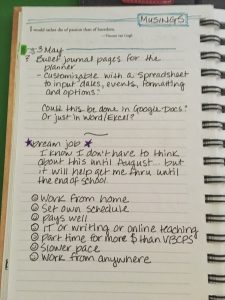 MUSINGS
I would rather die of passion than of boredom.
~ Vincent van Gogh
3 May
? Bullet journal pages for the
planner
- customizable with a spreadsheet
to input dates, events, formatting
and options?
Could this be done in Google Docs?
Or just in Word/Excel?
Dream job
I know I don't have to think
about this until August... but
it will help get me thru until
the end of school.
Work from home
Set own schedule
pays well
IT or writing or online teaching
Part time for more $ than VBCPS
Slower pace
Work from anywhere